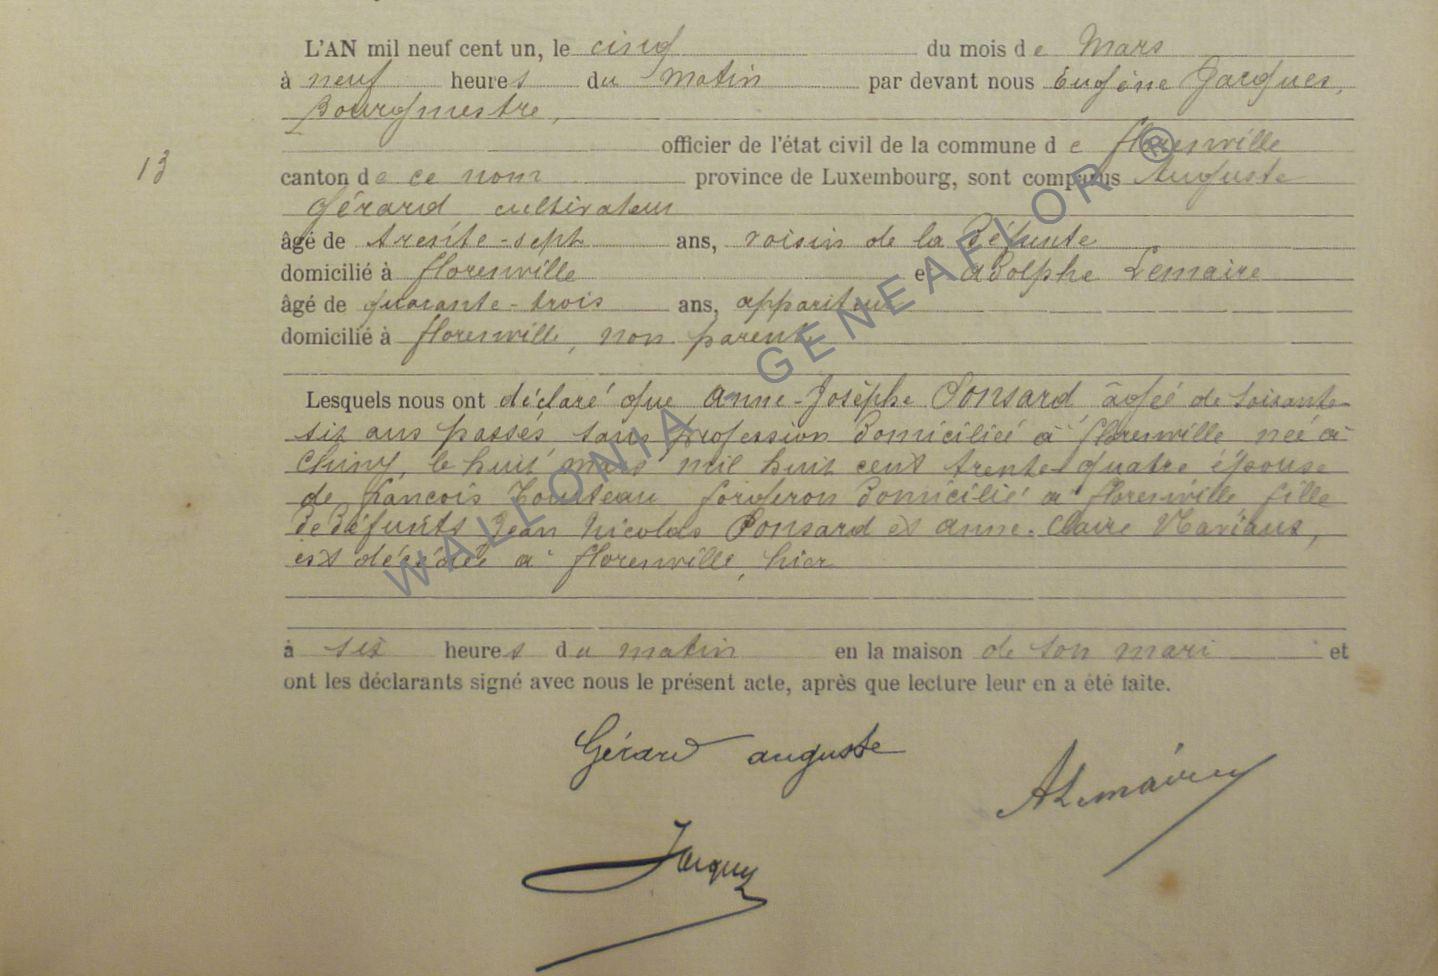 L'AN mil neuf cent un, le cinq du mois de Mars
à neuf heures du matin par devant nous Eugène Jacques,
Bourgmestre,
officier de l'état civil de la commune de florenville
13
canton de ce nom province de Luxembourg, sont comparus Auguste
Gérard cultivateur
âgé de trente-sept ans, voisin de la défunte
domicilié à florenville et Adolphe Lemaire
âgé de quarante-trois ans, appariteur
domicilié à florenville, non parent
Lesquels nous ont déclaré que Anne-Josèphe Ponsard âgée de soixante
six ans passés sans profession domiciliée à florenville née à
Chiny, le huit mars mil huit cent trente-quatre épouse
de françois forgeron domicilié à florenville fille
de défunts Jean Nicolas Ponsard et anne-Claire
est décédée à florenville, hier
à six heures du matin en la maison de son mari et
ont les déclarants signé avec nous le présent acte, après que lecture leur en a été faite.
Gérard auguste
ALemaire
Jacques
WALLONIA GENEAFLOR ®